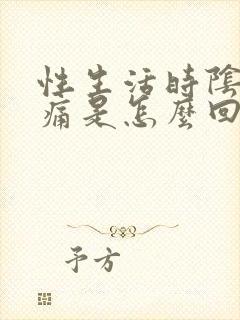 性生活時陰
痛是怎麼回
予方